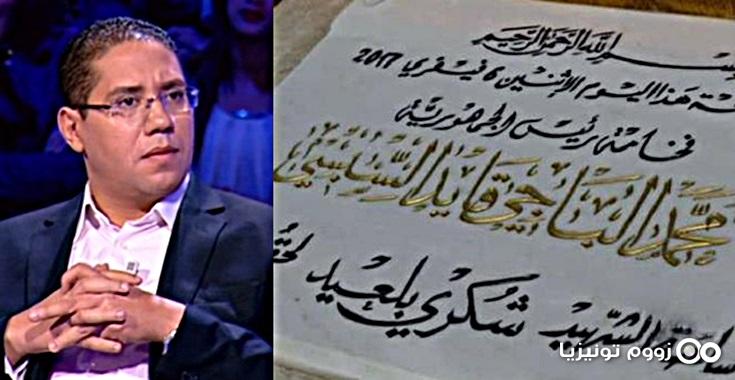 بسم الله الرحمن الرحيم
هذا اليوم الإثنين 6 فيفري 2017
فخامة رئيس الجمهورية
محمد الباجي قايد السبسي
ساحة الشهيد شكري بلعيد
زووم تونيزيا